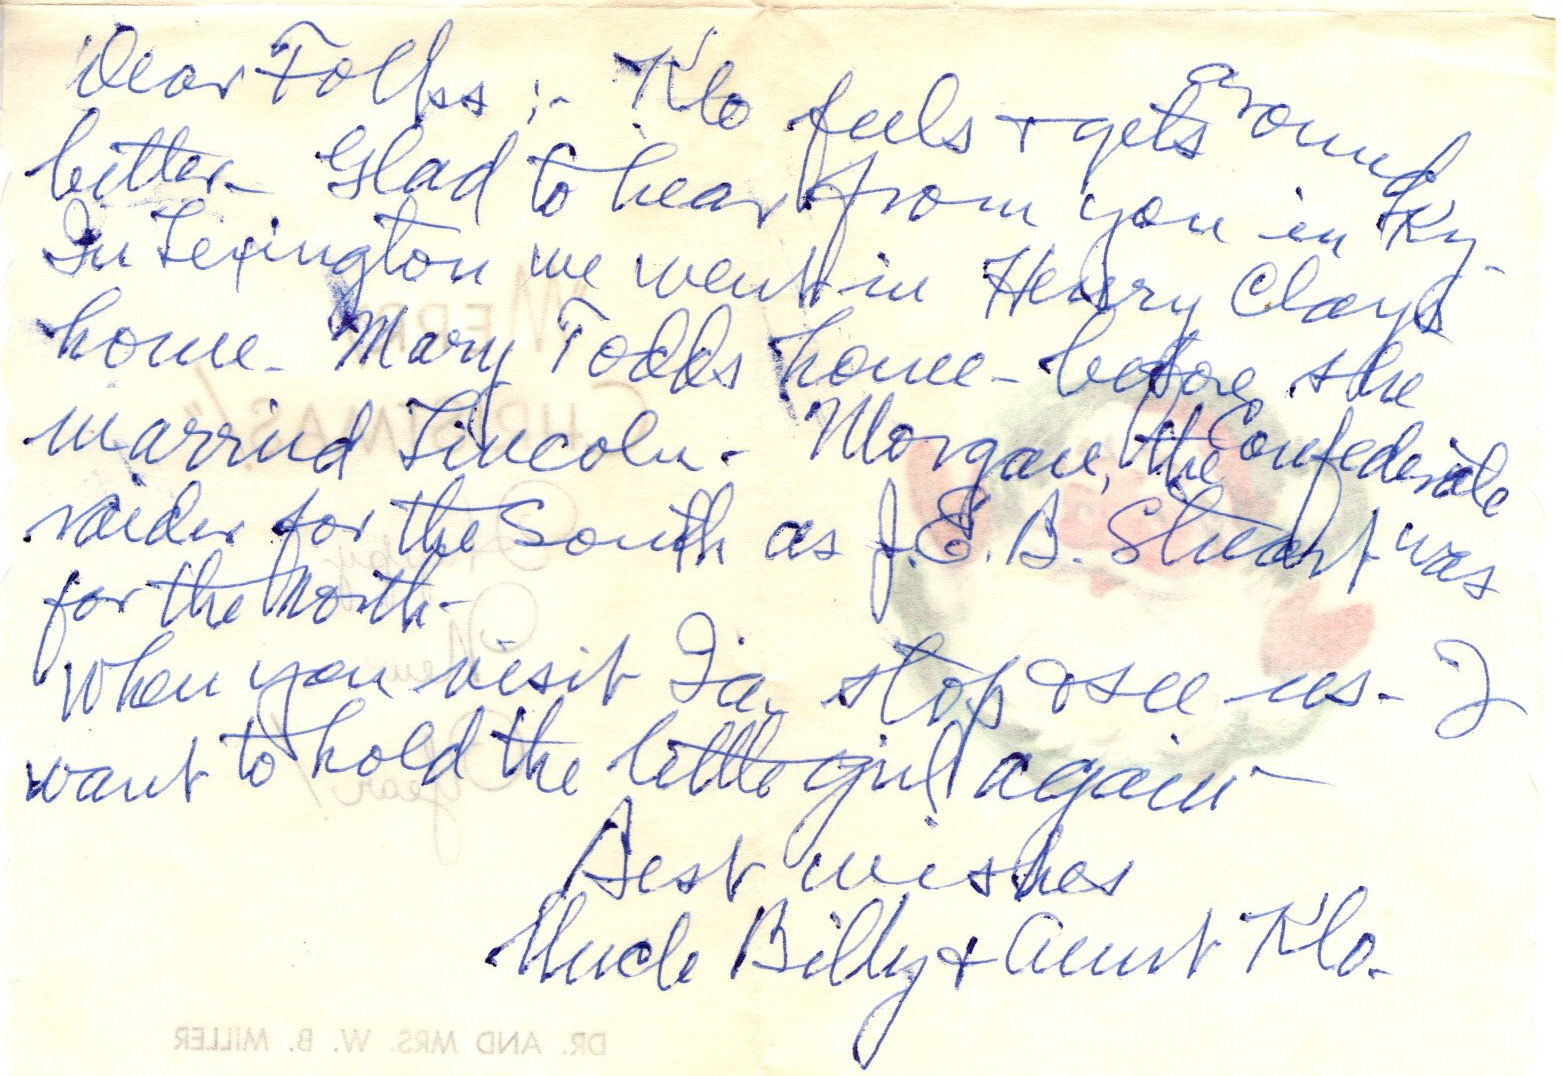 Dear Folkss :- Klo feels & gets around
better- Glad to hear from you in Ky.
In Lexington we went in Henry Clay's
home- Mary Todds home- before she
married Lincoln. Morgan, the Confederate
raider for the South as J.E.B. Stuart was
for the North-
When you visit Ia. stop & see us- I
want to hold the little girl again-
Best wishes
Uncle Billy & Aunt Klo.
MERRY
CHRISTMAS!
New
Year!
DR. AND MRS. W. B. MILLER